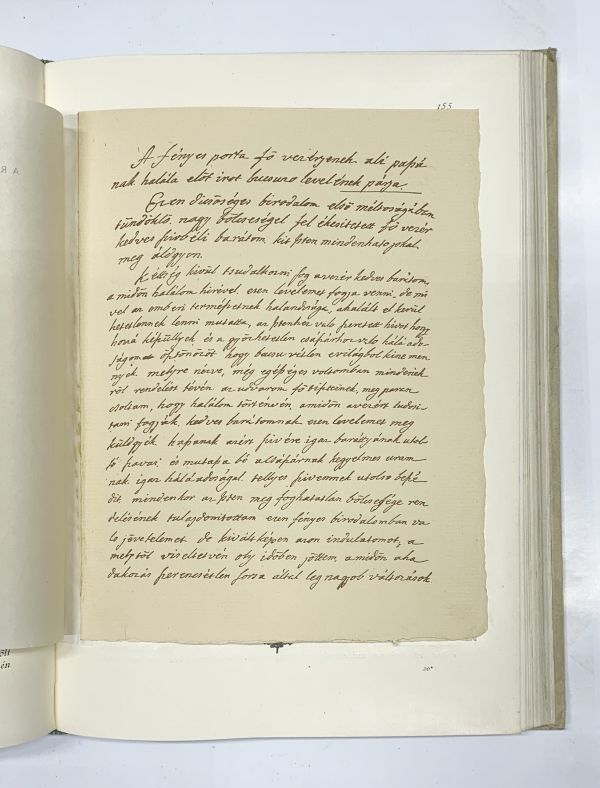 155
A fényes porta fő vezérjenek ali pasá
nak halála előt irot bucsuzo levelének párja.
Ezen dicsöséges birodalom első méltoságában
tündöklő, nagy bölcseségel fel ékesitetett fő vezér
kedves szivbéli barátom kit Isten mindenhatojokal
meg áldgyon.
Kéttség kivül tsudálkozni fog a vezér kedves barátom,
a midön halálom hirével, ezen levelemet fogja venni, de mi
vel az emberi termeszetnek halandosága, a halált el kerül
hetetlennek lenni mutattya, az Istenhez valo szeretett hivet hogy
hozá készüllyek és a győzhetetlen császárhoz valo háláadó
ságomat ösztönözöt hogy bucsu vétlen e világbol ki ne men
nyek. melyre nézve, még egésséges voltomban mindenek
röl rendelést tévén. az udvarom fő tiszteinek, meg paran
csoltam, hogy halálom történvén, amidön a vezért tudosi
tani fogják, kedves barátomnak ezen levelemet meg
küldgyék. hassanak azért szivére igaz baráttyának utol
só szavai és mutassa bé a császárnak kegyelmes uram
nak igaz háláadóságal tellyes szivemnek utolso beszé
dit. mindenkor az Isten meg foghatatlan bölcsessége ren
delésének tulajdonitottam ezen fényes birodalomban va
lo jövetelemet. de kiváltképen azon indulatomot, a
melytöl viseltetvén oly idöben jöttem, amidön a ha
dakozás szerencsétlen sorsa által leg nagyob változások
20*
ölt
én